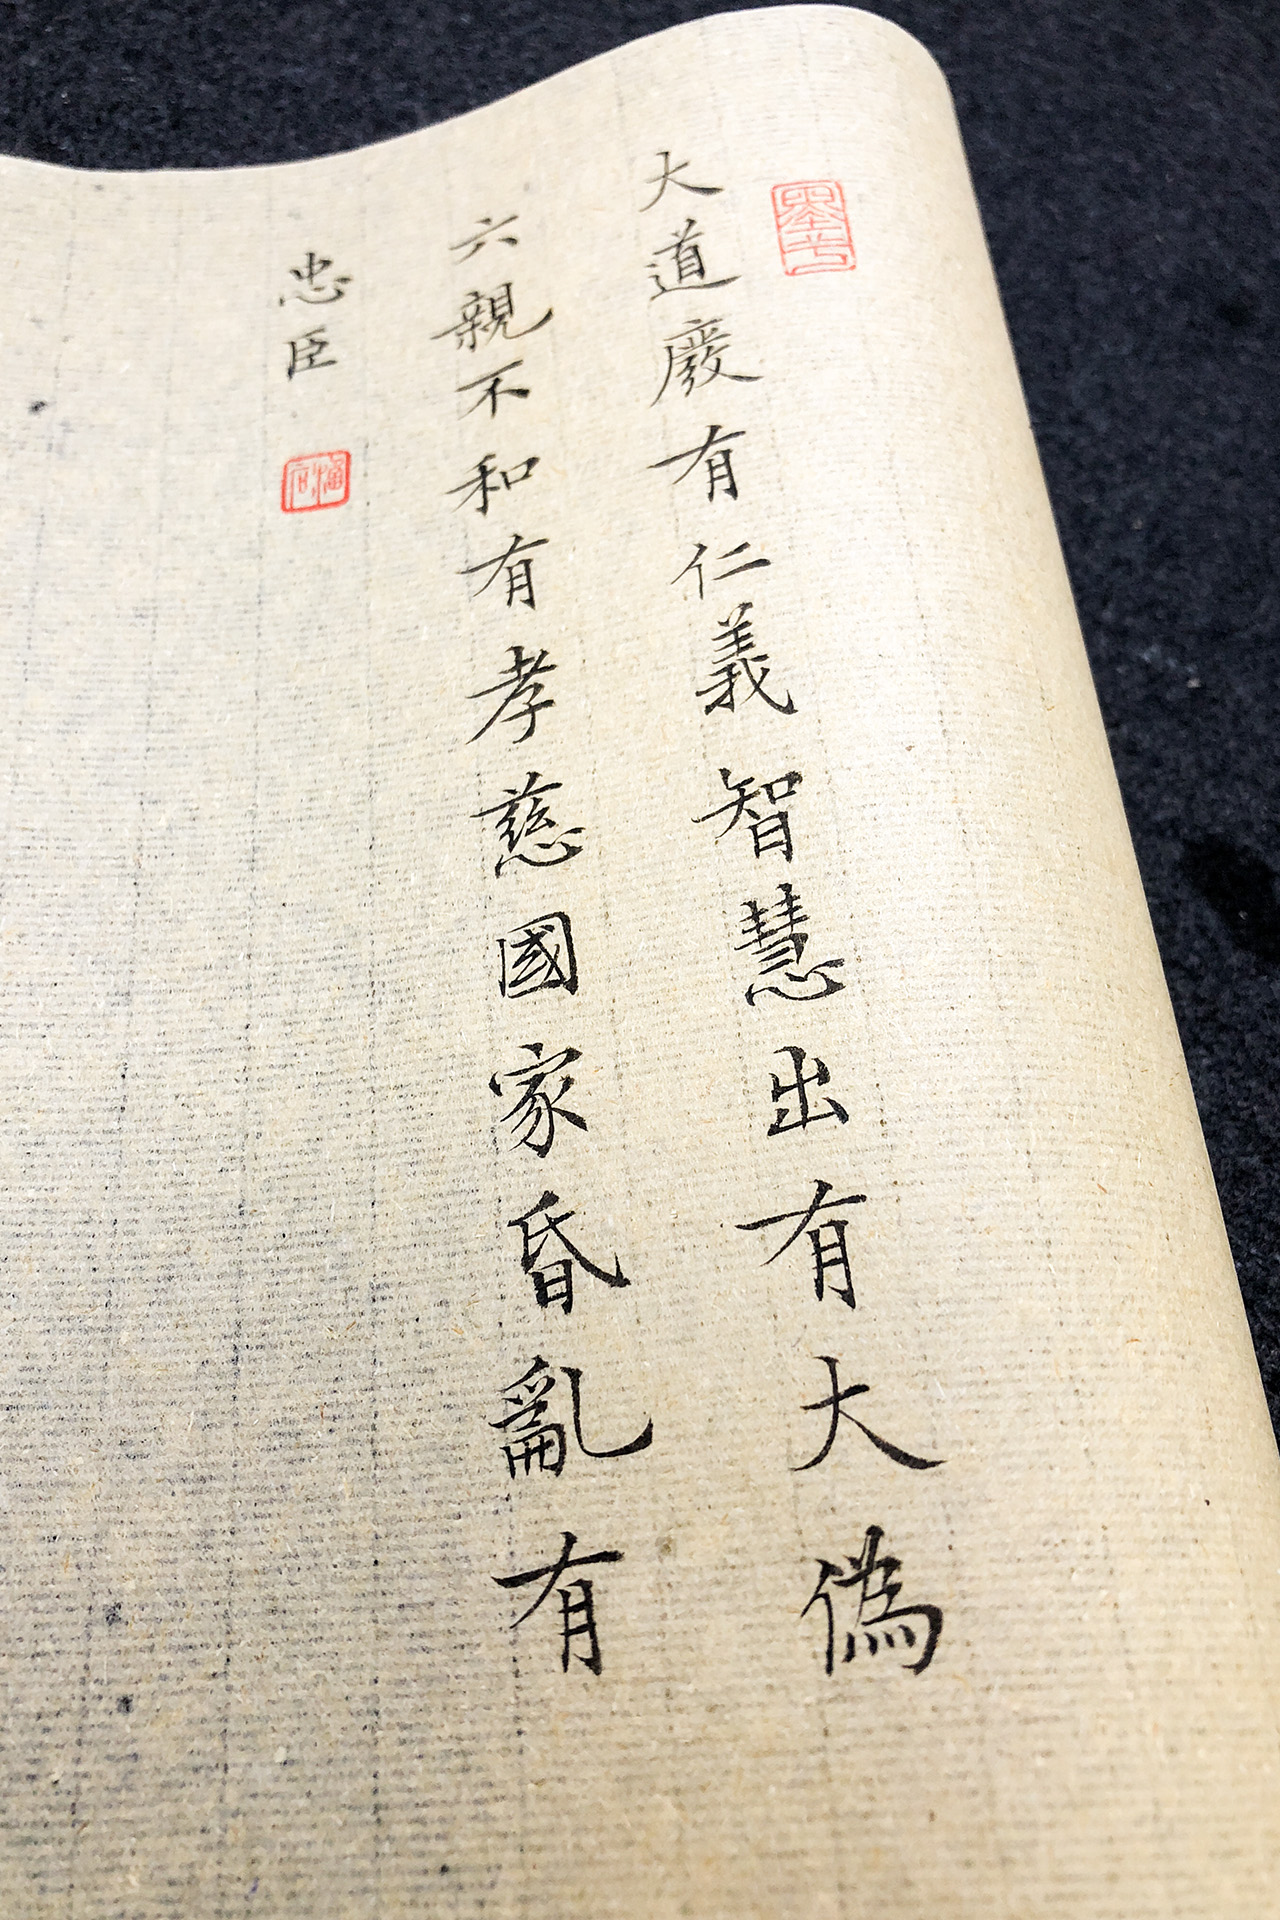 大道廢有仁義智慧出有大偽
六親不和有孝慈國家昏亂有
忠臣